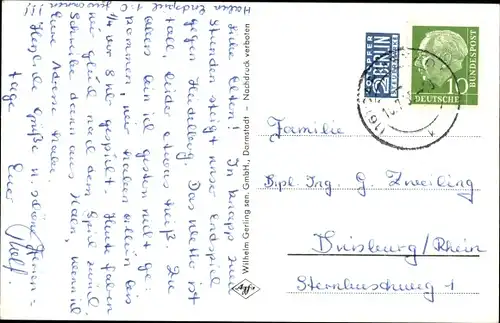 Liebe Eltern! In knapp zwei
Stunden steigt unser Endspiel
gegen Heidelberg. Das Wetter ist
toll, leider etwas heiß. Zu
kommen, wir haben allein bis
1/4 vor 8 Uhr gespielt. Heute fahren
wir gleich nach dem Spiel zurück.
Schreibe dann aus Köln, wenn ich
Eure Adresse habe.
Herzliche Grüße u. schöne Ferien-
tage
Euer
Rolf.
Haben Endspiel 1:0
!!!
Wilhelm Gerling sen. GmbH., Darmstadt - Nachdruck verboten
NOTOPFER
2 BERLIN
STEUERMARKE
DEUTSCHE
BUNDESPOST
10
(16)
Familie
Dipl. Ing. G. Zweiling
Duisburg/Rhein
Sternbuschweg 1